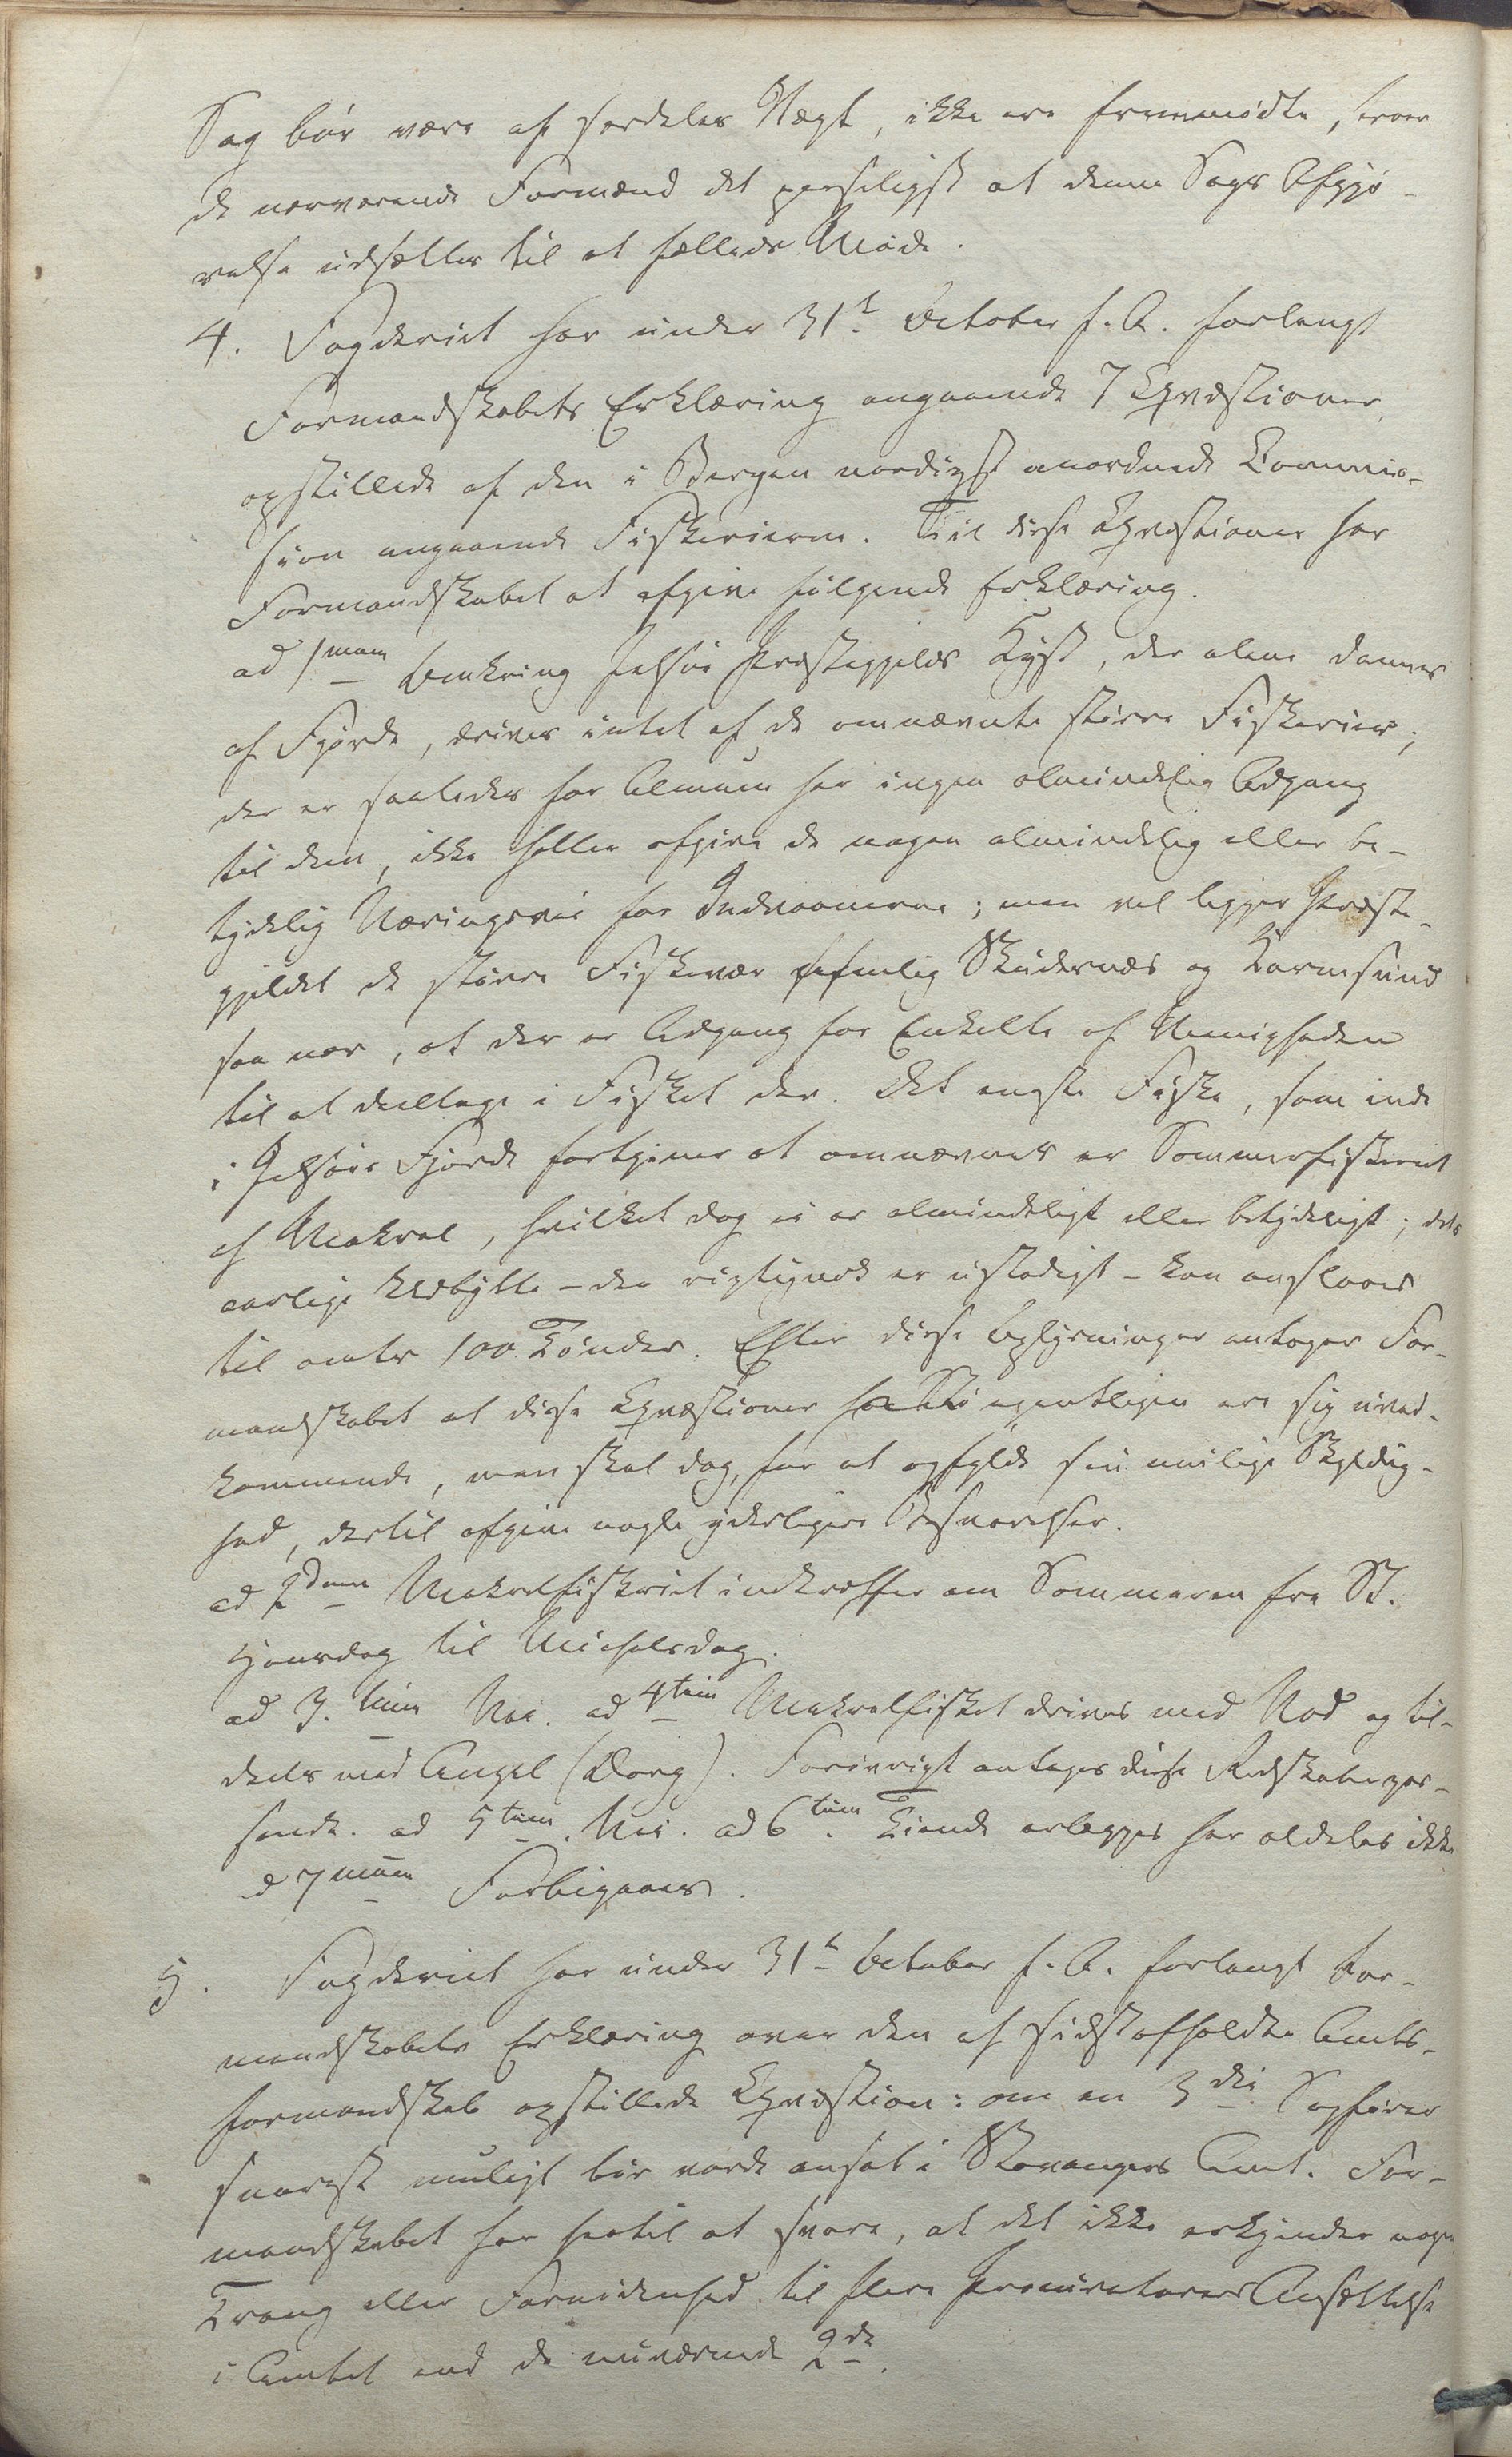 Sag bør være af særdeles Vægt, ikke ere fremmødte, troer
de nærværende Formænd det gavnligst at denne Sags Afgjø-
relse udsættes til et fælleds Møde.
4. Fogderiet har under 31t October f. A. forlangt
Formandskabets Erklæring angaaende 7 Qvæstioner
opstillede af den i Bergen naadigst anordnede Commis-
sion angaaende Fiskerierne. Til disse Qvæstioner har
Formandskabet at afgive følgende Erklæring.
ad 1mum Omkring Jelsøe Præstegjelds Kyst, der alene dannes
af Fjorde, drives intet af de omnævnte större Fiskerier;
der er saaledes for Almuen her ingen almindelig Adgang
til dem, ikke heller afgive de nogen almindelig eller be-
tydelig Næringsvei for Indvaanerne; men vel ligger Præste-
gjeldet de større Fiskevær nemlig Skudesnæs og Karmsund
saa nær, at der er Adgang for Enkelte af Menigheden
til at deeltage i Fisket der. Det eneste Fiske, som inde
i Jelsøe Fjorde fortjener at omnævnes er Sommerfiskeriet
af Makrel, hvilket dog ei er almindeligt eller betydeligt; dets
aarlige Udbytte - der rigtignok er ustadigt - kan anslaaes
til omtr 100 Tønder. Efter disse Oplysninger antager For-
mandskabet at disse Qvæstioner egentligen ere sig uved-
kommende, men skal dog, for at opfylde sin mulige Skyldig-
hed, dertil afgive nogle yderligere Besvarelser.
ad 2dum Makrelfiskeriet indtræffer om Sommeren fra St.
Hansdag til Michelsdag.
ad 3. tium Nei. ad 4tum Makrelfisket drives med Nod og til-
deels med Angel (Dorg). Forøvrigt antages disse Redskaber pas-
sende. ad 5tum. Nei. ad 6tum. Tiende erlægges her aldeles ikke
ad 7mum Forbigaaes.
5. Fogderiet har under 31t October f. A. forlangt For-
mandskabets Erklæring over den af sidstafholdte Amts-
formandskab opstillede Qvæstion: om en 3die Sagfører
snarest muligt bør vorde ansat i Stavangers Amt. For-
mandskabet har hertil at svare, at det ikke erkjender nogen
Trang eller Fornødenhed til flere Procuratorers Ansættelse
i Amtet end de nuværende 2de.